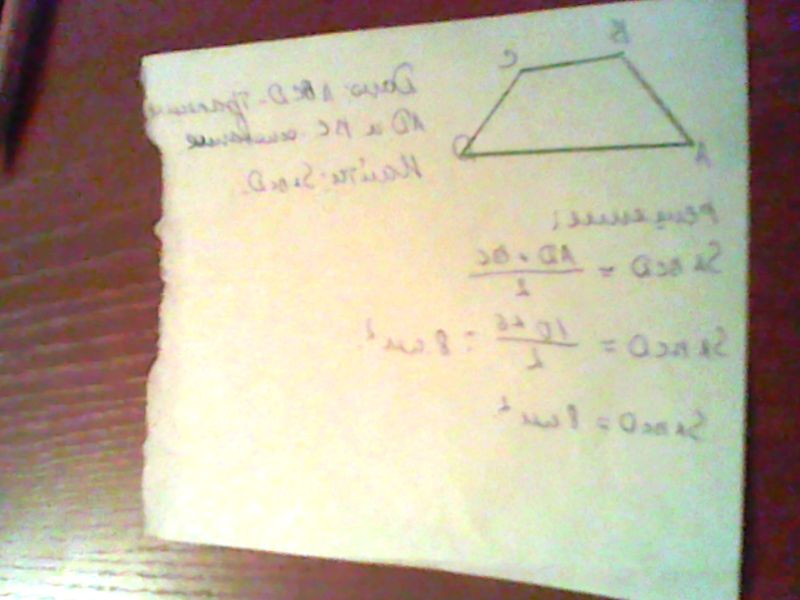 B
C
D
A
Дано: ABCD - трапеция
AD и BC - основание
Найти: SABCD.
решение:
SABCD = AD + BC / 2
SABCD = 10 + 6 / 2 = 8 см²
SABCD = 8 см²